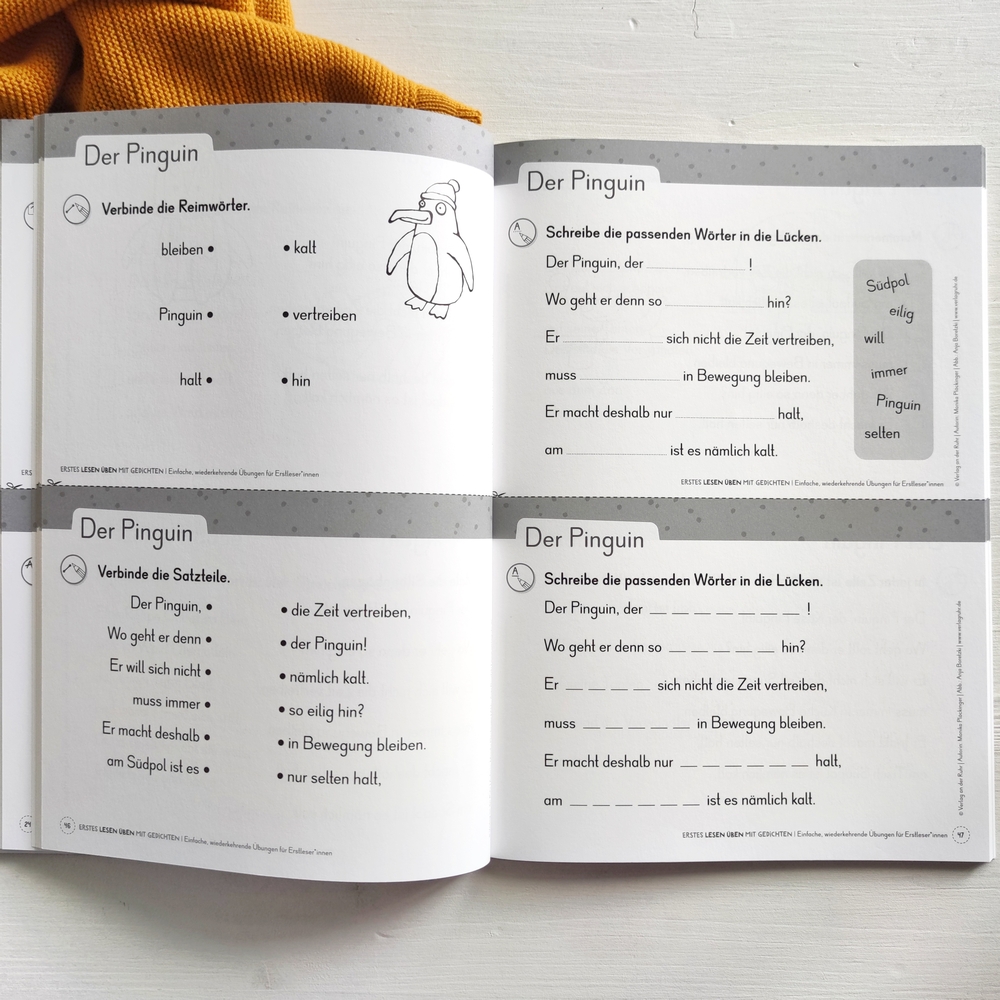 Der Pinguin
Verbinde die Reimwörter.
bleiben • • kalt
Pinguin • • vertreiben
halt • • hin
ERSTES LESEN ÜBEN MIT GEDICHTEN | Einfache, wiederkehrende Übungen für Erstleser*innen
Der Pinguin
Verbinde die Satzteile.
Der Pinguin, • • die Zeit vertreiben,
Wo geht er denn • • der Pinguin!
Er will sich nicht • • nämlich kalt.
muss immer • • so eilig hin?
Er macht deshalb • • in Bewegung bleiben.
am Südpol ist es • • nur selten halt,
46 ERSTES LESEN ÜBEN MIT GEDICHTEN | Einfache, wiederkehrende Übungen für Erstleser*innen
Der Pinguin
A
Schreibe die passenden Wörter in die Lücken.
Der Pinguin, der ____________ !
Wo geht er denn so ____________ hin?
Er ____________ sich nicht die Zeit vertreiben,
muss ____________ in Bewegung bleiben.
Er macht deshalb nur ____________ halt,
am ____________ ist es nämlich kalt.
Südpol
eilig
will
immer
Pinguin
selten
ERSTES LESEN ÜBEN MIT GEDICHTEN | Einfache, wiederkehrende Übungen für Erstleser*innen
Der Pinguin
A
Schreibe die passenden Wörter in die Lücken.
Der Pinguin, der _ _ _ _ _ _ _ !
Wo geht er denn so _ _ _ _ _ hin?
Er _ _ _ _ sich nicht die Zeit vertreiben,
muss _ _ _ _ _ in Bewegung bleiben.
Er macht deshalb nur _ _ _ _ _ _ halt,
am _ _ _ _ _ _ ist es nämlich kalt.
ERSTES LESEN ÜBEN MIT GEDICHTEN | Einfache, wiederkehrende Übungen für Erstleser*innen 47
24
ERS